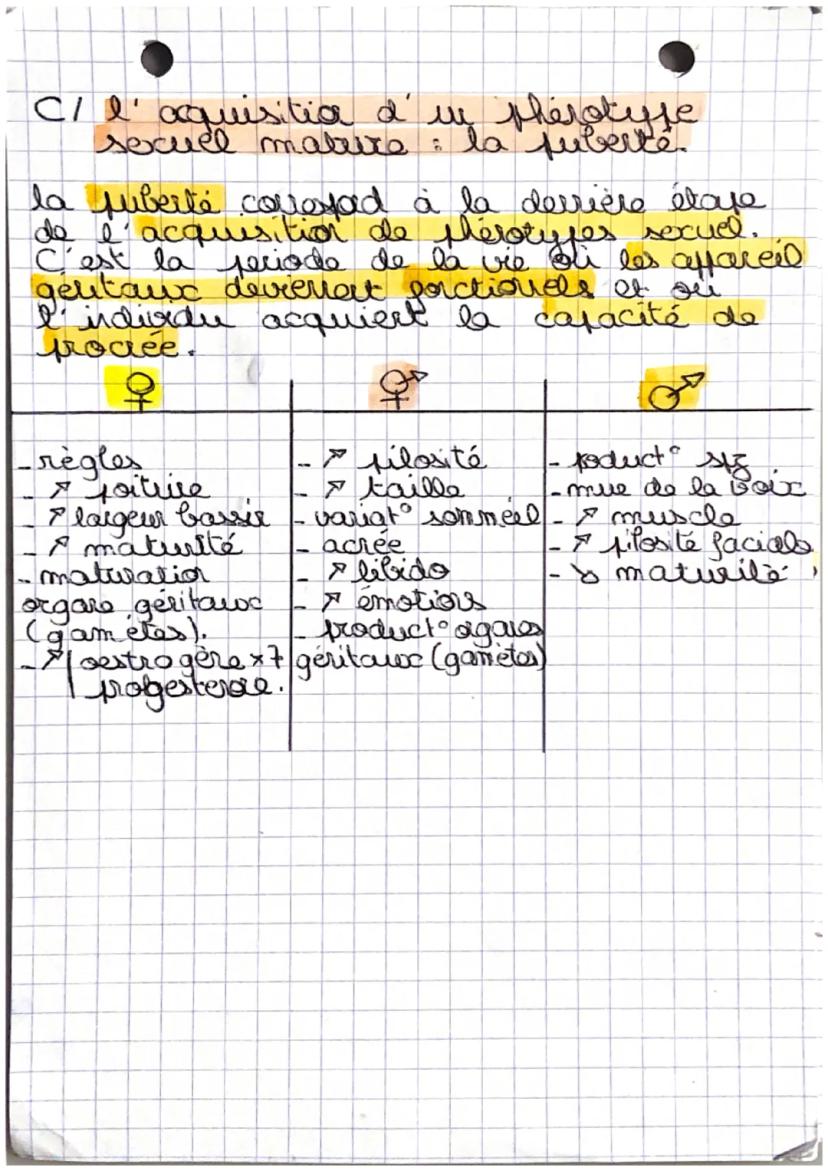 C/ l'acquisition d'un phénotype
sexuel mature : la puberté.
la puberté correspond à la dernière étape
de l'acquisition de phénotypes sexuel.
C'est la periode de la vie où les appareil
génitaux deviennent fonctionnels et où
l'individu acquiert la capacité de
procrée.
♀
- règles
- ↗ poitrine
- ↗ largeur bassin
- ↗ maturité
- maturation
organe génitaux
(gamètes).
- ↗ oestrogène x7
progesterone.
⚥
- ↗ pilosité
- ↗ taille
- variat° sommeil
- acnée
- ↗ libido
- ↗ émotions
- product° organes
génitaux (gamètes)
♂
- product° spz
- mue de la voix
- ↗ muscle
- ↗ pilosité faciale
- ↘ maturité